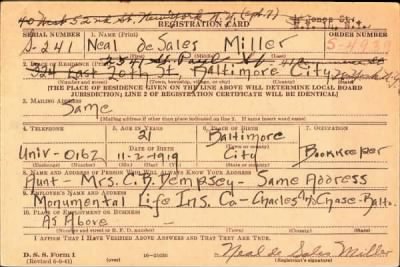 40 West 52nd St. New York N.Y. (Apt. 7)
REGISTRATION CARD
SERIAL NUMBER 1. NAME (Print) ORDER NUMBER
S-241 Neal de Sales Miller S-4939
2. ADDRESS (Print)
2311 St. Paul
324 East 20th St. Baltimore City
(Number and street) (Town, township, village, or city) (County) (State)
[THE PLACE OF RESIDENCE GIVEN ON THE LINE ABOVE WILL DETERMINE LOCAL BOARD
JURISDICTION; LINE 2 OF REGISTRATION CERTIFICATE WILL BE IDENTICAL]
3. MAILING ADDRESS
Same
[Mailing address if other than place indicated on line 2. If same insert word same]
4. TELEPHONE 5. AGE IN YEARS 6. PLACE OF BIRTH 7. OCCUPATION
21 Baltimore
DATE OF BIRTH
Univ-0162 11-2-1919 City Bookkeeper
8. NAME AND ADDRESS OF PERSON WHO WILL ALWAYS KNOW YOUR ADDRESS
Aunt - Mrs. C. B. Dempsey - Same Address
9. EMPLOYER'S NAME AND ADDRESS
Monumental Life Ins. Co - Charles & Chase - Balto.
10. PLACE OF EMPLOYMENT OR BUSINESS
As Above
I AFFIRM THAT I HAVE VERIFIED ABOVE ANSWERS AND THAT THEY ARE TRUE.
D. S. S. Form 1
(Revised 6-9-41) (over) Neal de Sales Miller